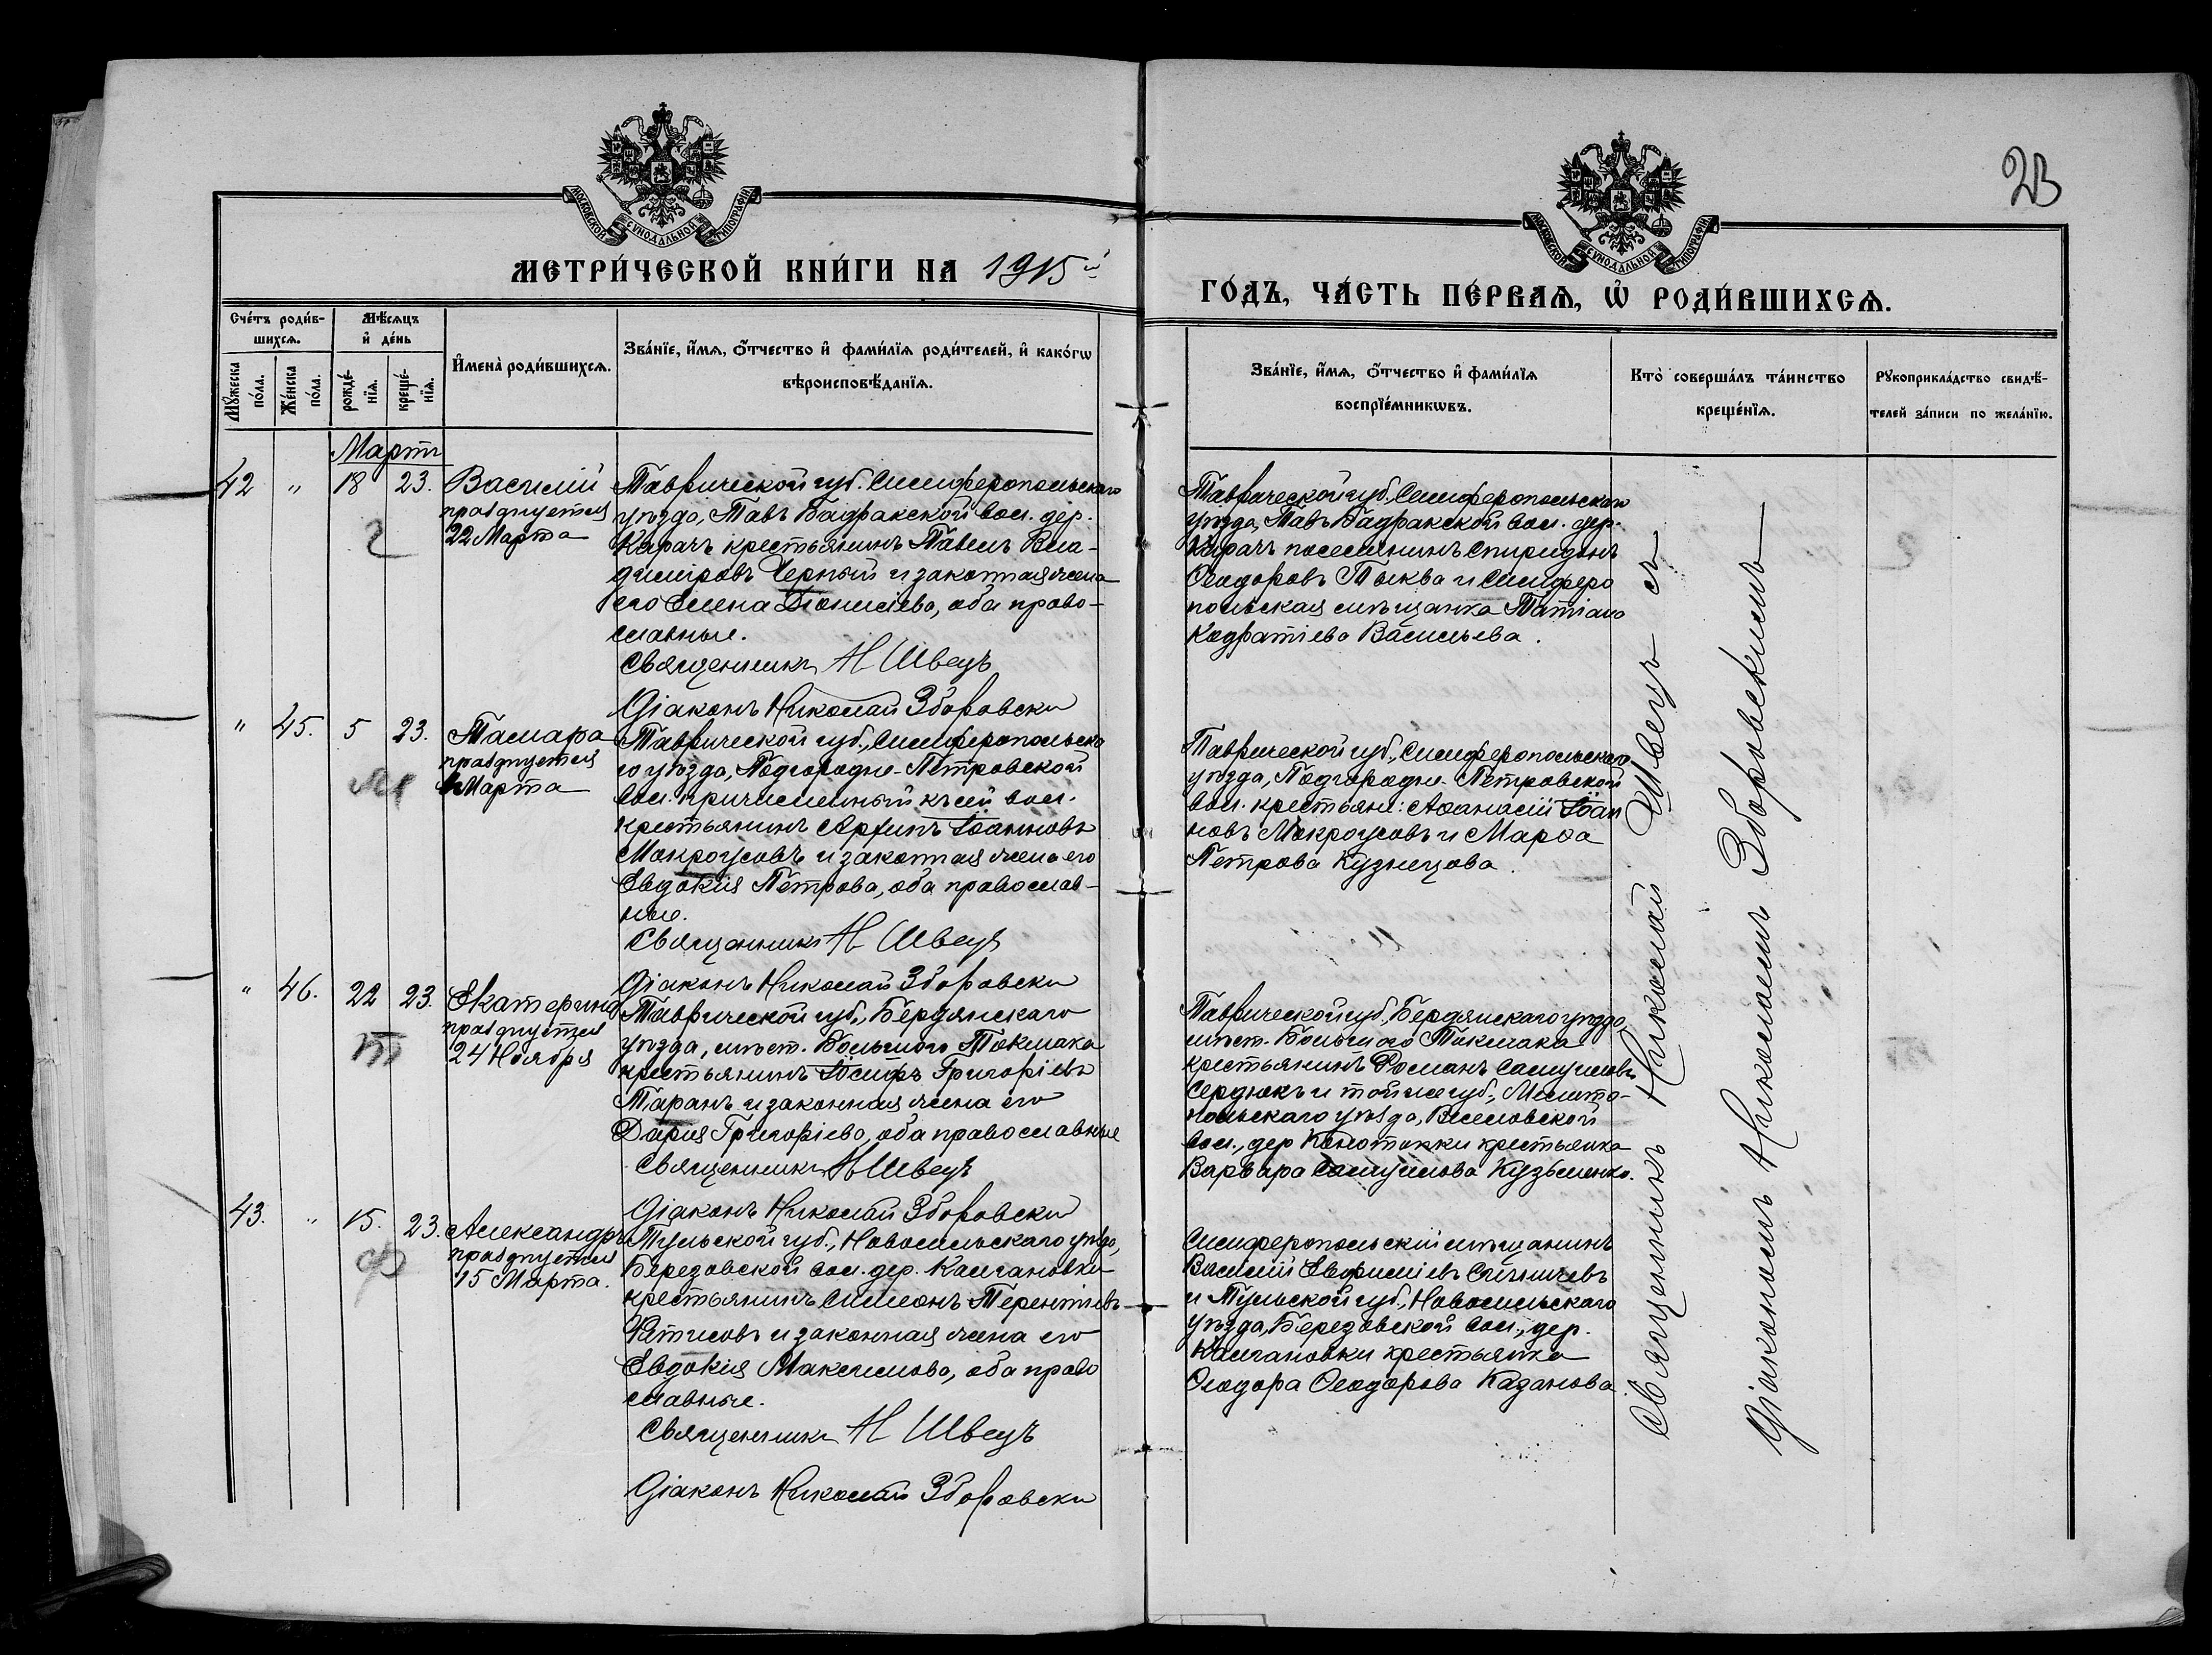 23
МОСКОВСКОЙ СѴНОДАЛЬНОЙ ТИПОГРАФІИ
МОСКОВСКОЙ СѴНОДАЛЬНОЙ ТИПОГРАФІИ
МЕТРИ́ЧЕСКОЙ КНИ́ГИ НА 1915й
ГО́ДЪ, ЧА́СТЬ ПЕ́РВАѦ, Ѡ҆ РОДИ́ВШИХСѦ.
Сче́тъ роди́в-
шихсѧ.
Мꙋжеска
по́ла.
Же́нска
по́ла.
Мѣ́сѧцъ
и҆ де́нь
рожде́-
нїѧ.
креще́-
нїѧ.
И҆мена̀ роди́вшихсѧ.
Зва́нїе, и҆́мѧ, ѻ҆́тчество и҆ фами́лїѧ роди́телей, и҆ како́гѡ
вѣроисповѣ́данїѧ.
Зва́нїе, и҆́мѧ, ѻ҆́тчество и҆ фами́лїѧ
воспрїе́мникѡвъ.
Кто̀ соверша́лъ та́инство
креще́нїѧ.
Рꙋкоприкла́дство свидѣ́-
телей за́писи по жела́нїю.
Мартъ
42 " 18 23. Василій
празднуется
22 Марта
Таврической губ. Симферопольскаго
уѣзда, Тавъ Бадракской вол. дер.
Карачъ крестьянинъ Павелъ Вла-
диміровъ Черный и законная жена
его Елена Діонисіева, оба право-
славные.
Священникъ Н Швецъ
Діаконъ Николай Зборовски
Таврической губ. Симферопольскаго
уѣзда, Тавъ Бадракской вол. дер.
Карачъ поселянинъ Спиридонъ
Ѳеодоровъ Тыква и Симферо
польская мѣщанка Татіана
Кодратіева Васильева.
" 45. 5 23. Тамара
празднуется
1 Марта
Таврической губ., Симферопольска
го уѣзда, Подгородне-Петровской
вол. причисленный къ сей вол.
крестьянинъ Архипъ Іоанновъ
Мокроусовъ и законная жена его
Евдокія Петрова, оба православ-
ные.
Священникъ Н Швецъ
Діаконъ Николай Зборовски
Таврической губ., Симферопольскаго
уѣзда, Подгородне-Петровской
вол. крестьяне: Аѳанасій Іоан
новъ Мокроусовъ и Марѳа
Петрова Кузнецова.
" 46. 22 23. Екатерина
празднуется
24 Ноября
Таврической губ., Бердянскаго
уѣзда, мѣст. Большого Токмака
крестьянинъ Іосифъ Григоріевъ
Таранъ и законная жена его
Дарія Григоріева, оба православные
Священникъ Н Швецъ
Діаконъ Николай Зборовски
Таврической губ., Бердянскаго уѣзда,
мѣст. Большого Токмака
крестьянинъ Романъ Самуиловъ
Сердюкъ и той же губ., Мелито-
польскаго уѣзда, Веселовской
вол., дер крестьянка
Варвара Самуилова Кузьменко.
43. " 15. 23. Александръ
празднуется
15 Марта.
Тульской губ., Новосильскаго уѣзда,
Березовской вол. дер. Калгановки
крестьянинъ Симеонъ Терентіевъ
и законная жена его
Евдокія Максимова, оба право
славные.
Священникъ Н Швецъ
Діаконъ Николай Зборовски
Симферопольскій мѣщанинъ
Василій Евфиміевъ
и Тульской губ., Новосильскаго
уѣзда, Березовской вол., дер.
Калгановки крестьянка
Ѳеодора Ѳеодорова Казакова.
Священникъ Николай Швецъ съ
Діакономъ Николаемъ Зборовскимъ